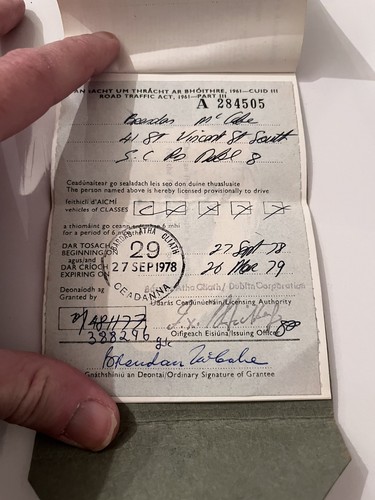 AN tACHT UM THRÁCHT AR BHÓITHRE, 1961—CUID III
ROAD TRAFFIC ACT, 1961—PART III
A 284505
Brendan Mc Cabe
41 St Vincent St South
S.C. Rd Dubl 8
Ceadúnaítear go sealadach leis seo don duine thuasluaite
The person named above is hereby licensed provisionally to drive
feithiclí d'AICMÍ
vehicles of CLASSES
C
a thiomáint go ceann 6 mhí
for a period of 6
DAR TOSACH
BEGINNING ON
27 Sept 78
agus/and
DAR CRÍOCH
EXPIRING ON
26 Mar 79
ATHA CLIATH
29
27 SEP 1978
CEADANNA
Deonaíodh ag
Granted by
Atha Cliath/ Dublin Corporation
Údarás Ceadúnúcháin/Licensing Authority
Oifigeach Eisiúna/Issuing Officer
388296
Brendan McCabe
Gnáthshíniú an Deontaí/Ordinary Signature of Grantee